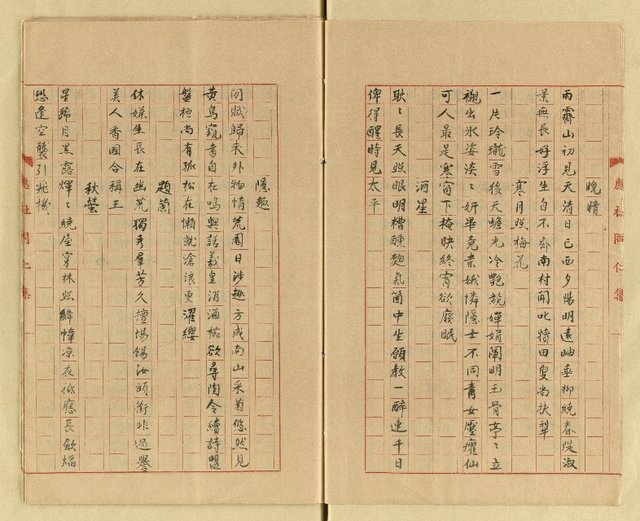 晚晴
雨霽山初見天清日已西夕陽明遠岫垂柳繞春堤淑
景無長好浮生自不齊南村聞叱犢田叟尚扶犁
寒月照梅花
一片玲瓏雪後天蟾光冷艷競嬋娟闌明玉骨亭〻立
襯出氷姿淡〻妍畢竟素娥憐隱士不同青女壓癯仙
可人最是寒窗下掩映終宵欲廢眠
酒星
耿〻長天照眼明糟醺麴氣箇中生願教一醉連千日
俾得醒時見太平
隱趣
問眠歸來外物情荒園日涉趣方成南山采菊悠然見
黃鳥窺書自在鳴與話羲皇消酒椀欲尋陶令續詩盟
盤桓尚有孤松在懶就滄浪更濯纓
題蘭
休嫌生長在幽荒獨秀羣芳久擅場錫汝頭銜非過譽
美人香國合稱王
秋螢
星稀月黑露煇〻繞屋穿林照絳幃凉夜低應長飲焰
恐逢空襲引飛機